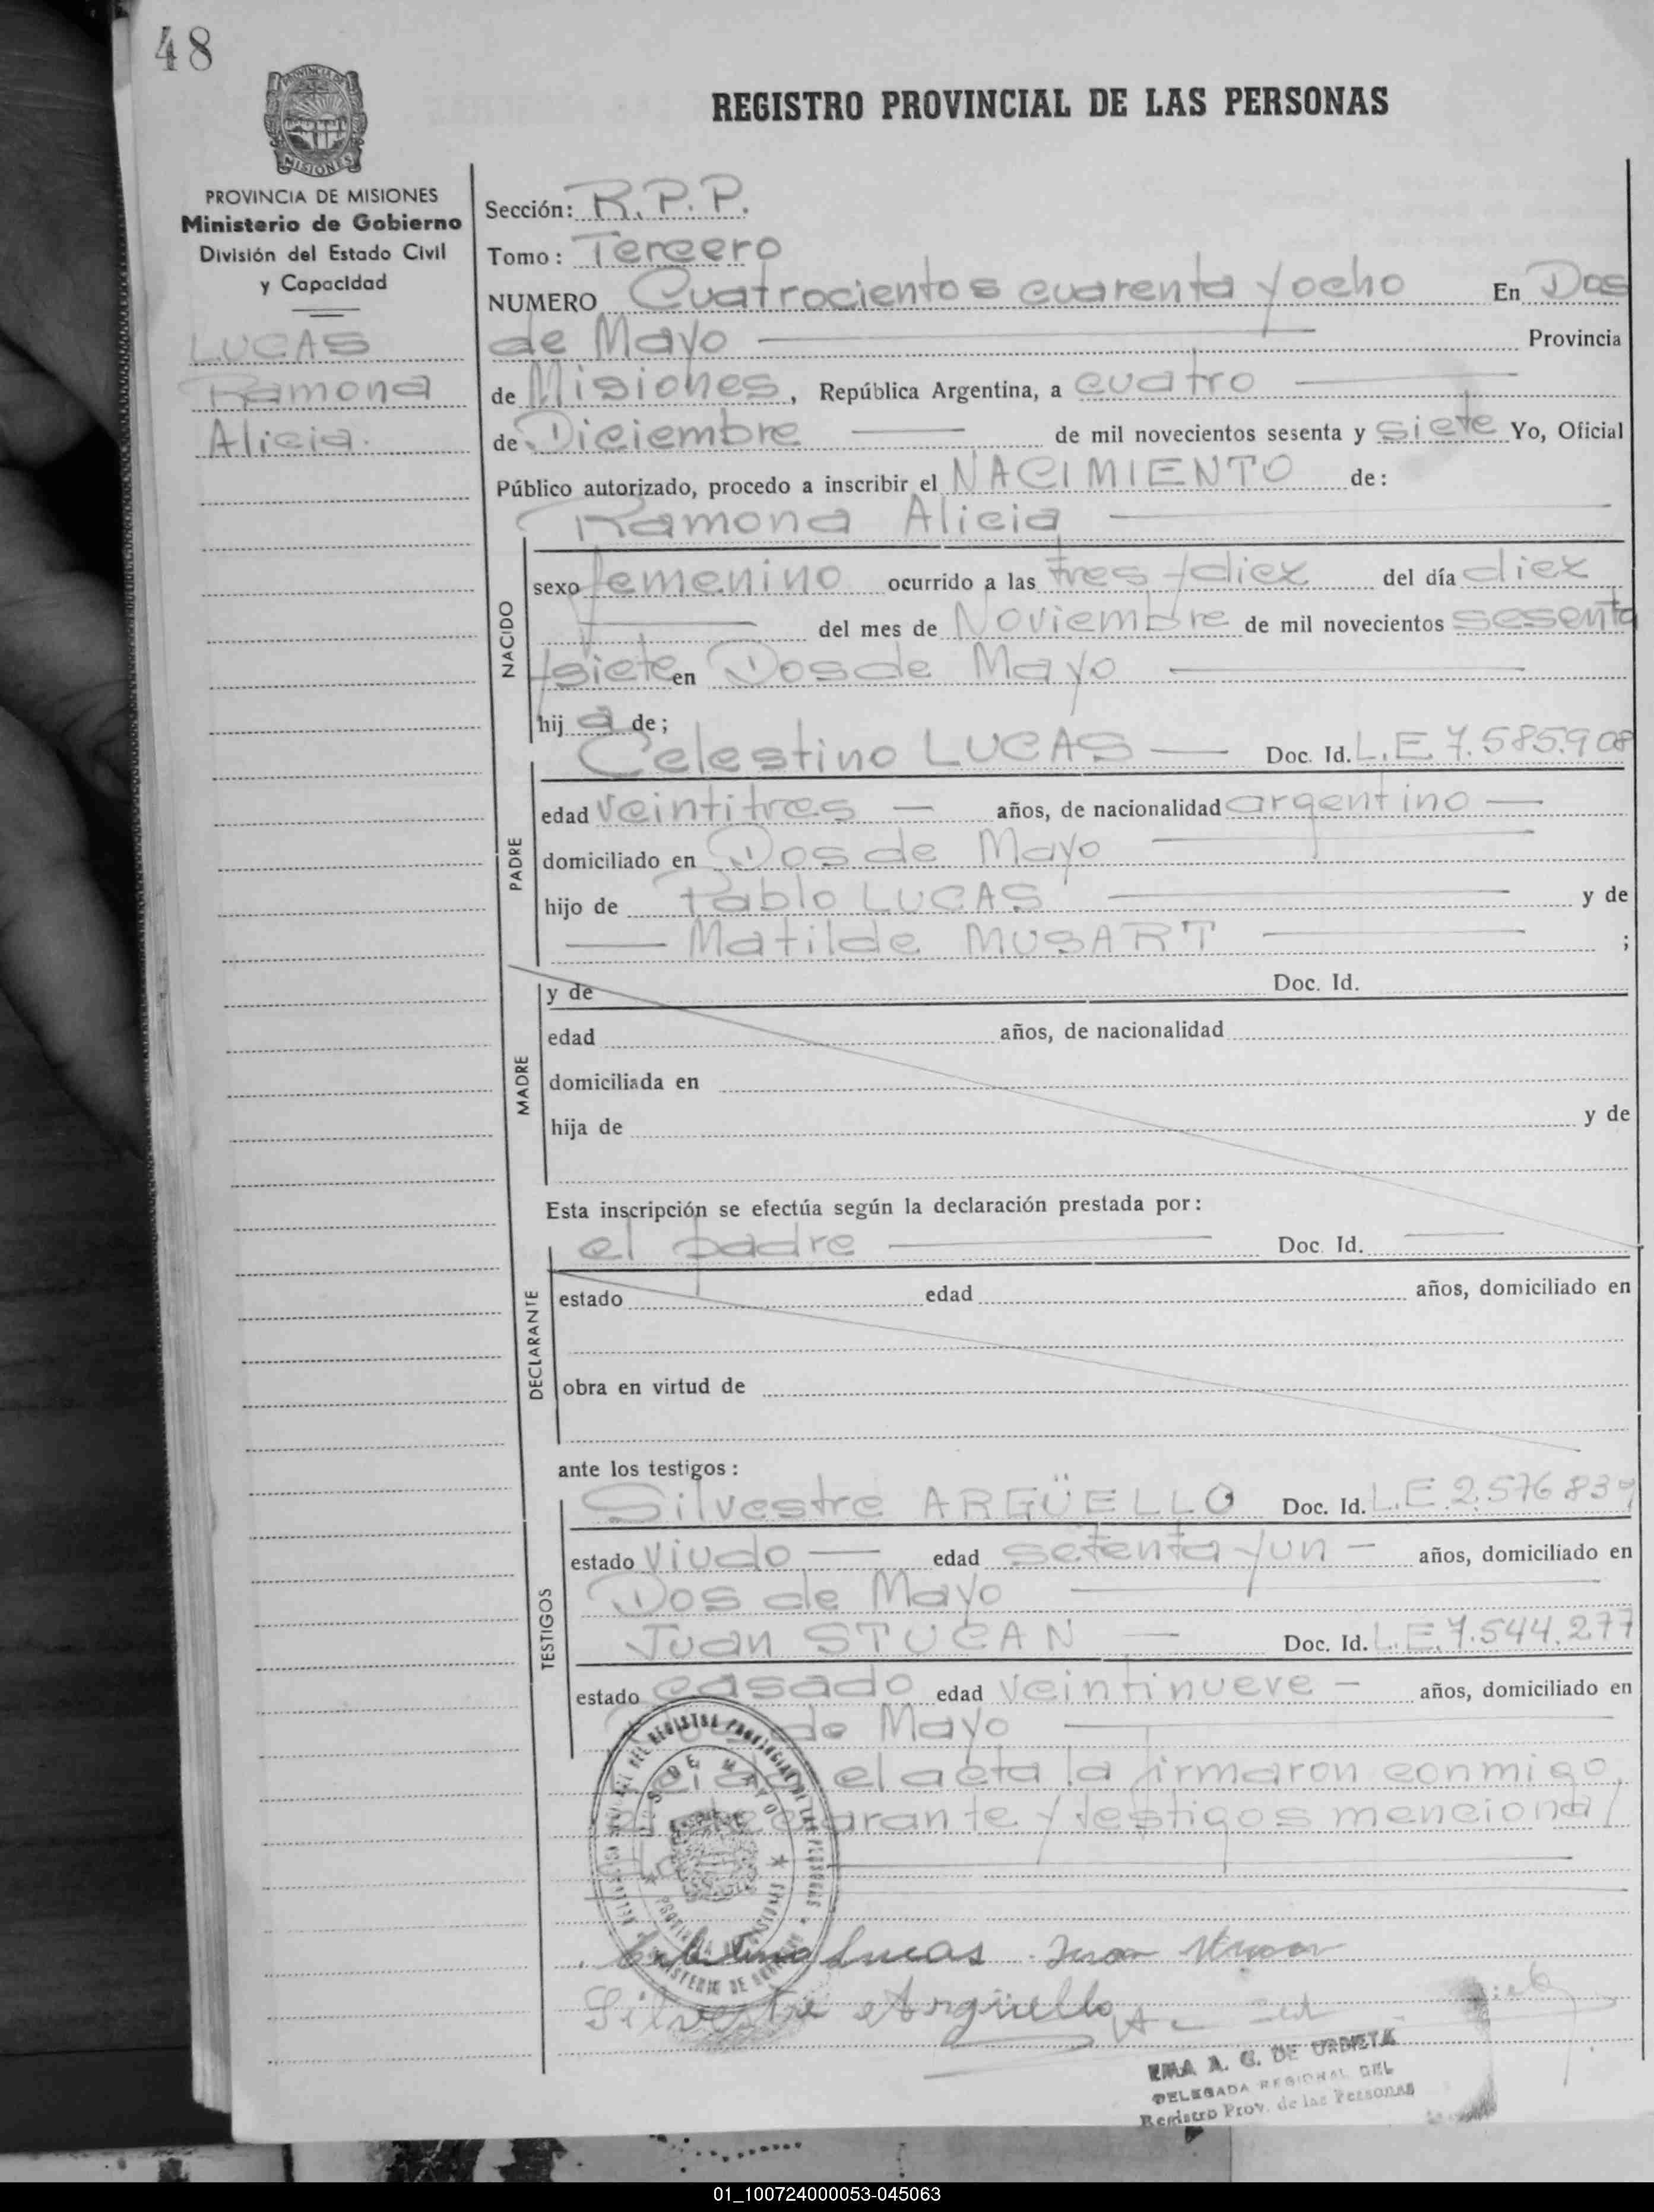 48
PROVINCIA DE MISIONES
REGISTRO PROVINCIAL DE LAS PERSONAS
PROVINCIA DE MISIONES
Ministerio de Gobierno
División del Estado Civil
y Capacidad
LUCAS
Ramona
Alicia.
Sección: R.P.P.
Tomo: Tercero
NUMERO Cuatrocientos cuarenta y ocho En Dos
de Mayo Provincia
de Misiones, República Argentina, a cuatro
de Diciembre de mil novecientos sesenta y siete Yo, Oficial
Público autorizado, procedo a inscribir el NACIMIENTO de:
Ramona Alicia
NACIDO
sexo femenino ocurrido a las tres y diez del día diez
del mes de Noviembre de mil novecientos sesenta
y siete en Dos de Mayo
hij a de;
PADRE
Celestino LUCAS Doc. Id. L.E 7.585.908
edad veintitres años, de nacionalidad argentino
domiciliado en Dos de Mayo
hijo de Pablo LUCAS y de
Matilde MUSART ;
MADRE
y de Doc. Id.
edad años, de nacionalidad
domiciliada en
hija de y de
Esta inscripción se efectúa según la declaración prestada por:
DECLARANTE
el padre Doc. Id.
estado edad años, domiciliado en
obra en virtud de
ante los testigos:
TESTIGOS
Silvestre ARGÜELLO Doc. Id. L.E. 2.576.839
estado viudo edad setenta y un años, domiciliado en
Dos de Mayo
Juan STUCAN Doc. Id. L.E. 7.544.277
estado casado edad veintinueve años, domiciliado en
de Mayo
el acta la firmaron conmigo,
declarante y testigos menciona/
DOS DE MAYO
Celestino Lucas Juan
Silvestre Argüello
EMA A. G. DE URBIETA
DELEGADA REGIONAL DEL
Registro Prov. de las Personas
01_100724000053-045063